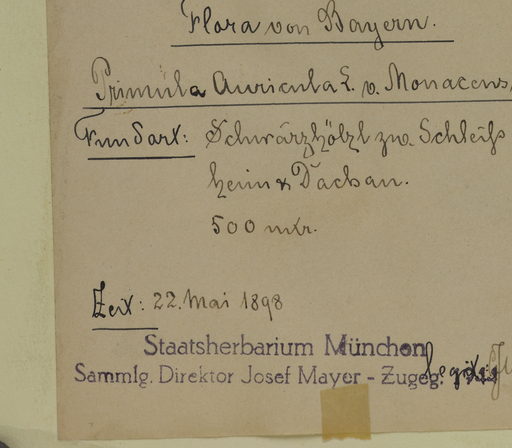 Flora von Bayern.
Primula Auricula L. v. Monacens.
Fundort: Schwarzhölzl zw. Schleiß
heim & Dachau.
500 mtr.
Zeit: 22. Mai 1898
Staatsherbarium München
Sammlg. Direktor Josef Mayer - Zugeg.
legit